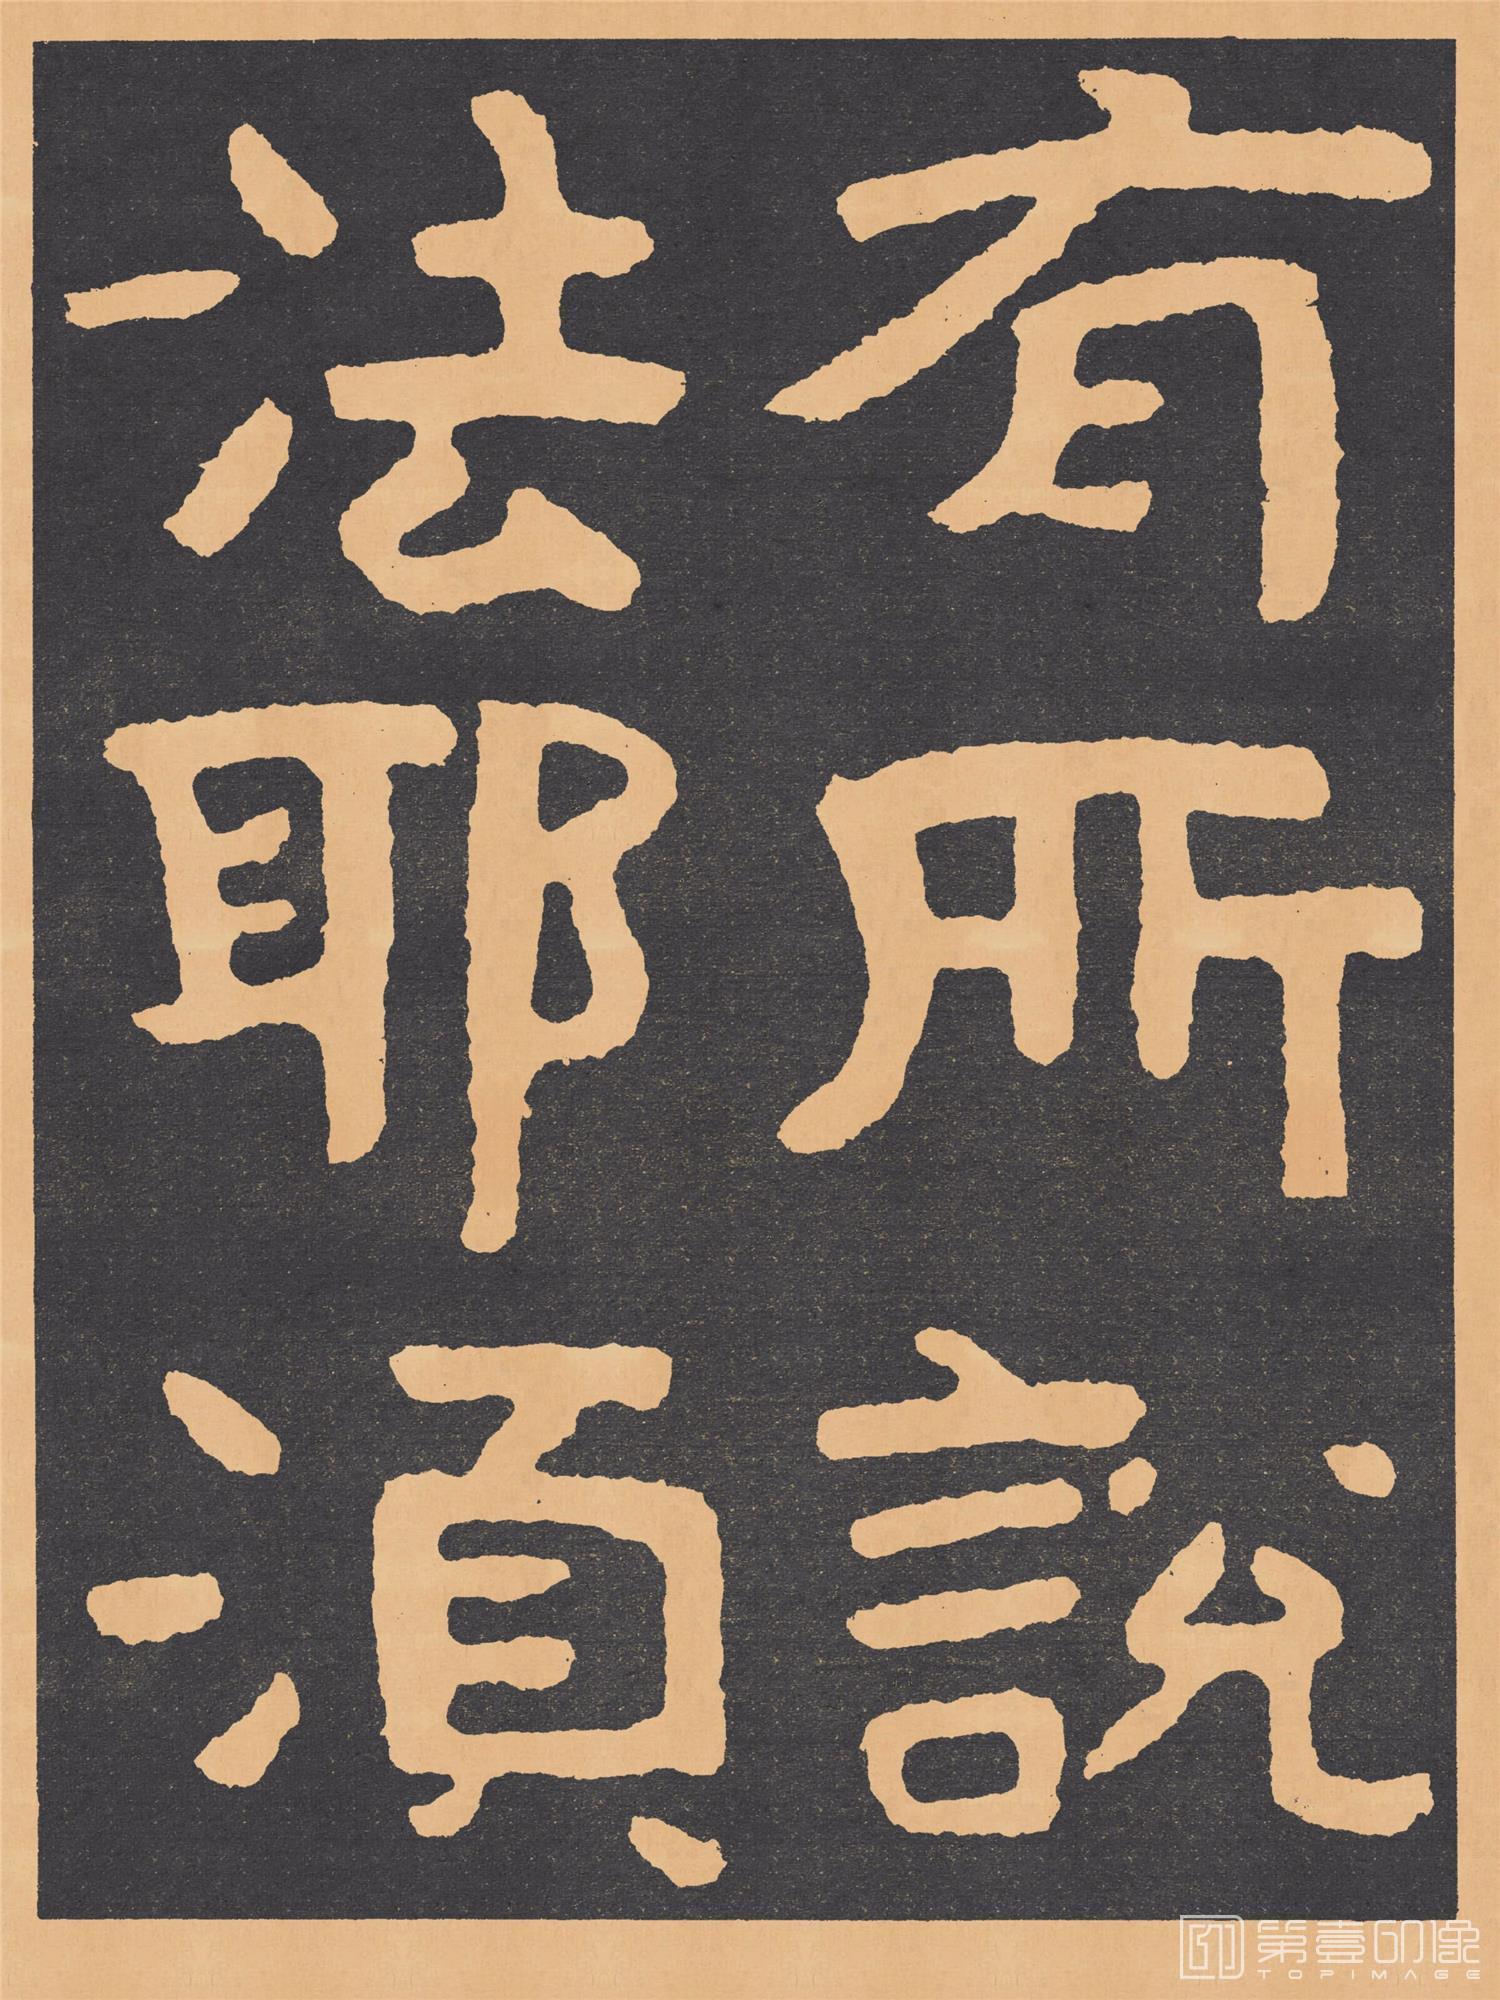 有所說
法耶湏
第壹印像
TOPIMAGE